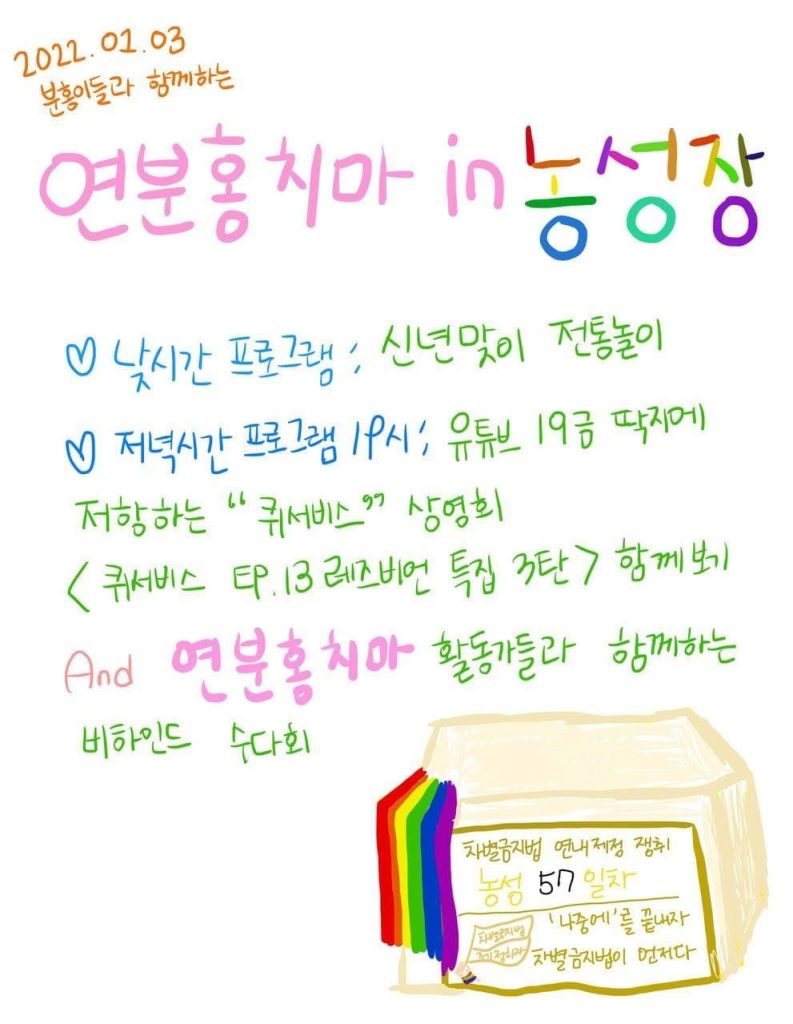 2022.01.03
분홍이들과 함께하는
연분홍치마 in 농성장
♡ 낮시간 프로그램 ; 신년맞이 전통놀이
♡ 저녁시간 프로그램 19시 ; 유튜브 19금 딱지에
저항하는 “퀴서비스” 상영회
<퀴서비스 EP.13 레즈비언 특집 3탄> 함께보기
And 연분홍치마 활동가들과 함께하는
비하인드 수다회
차별금지법 연내제정 쟁취
농성 57일차
'나중에'를 끝내자
차별금지법이 먼저다
차별금지법
제정하라